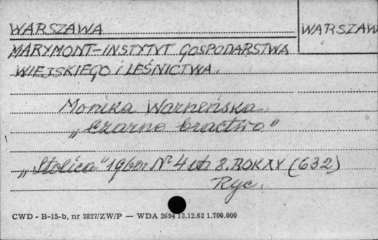 WARSZAWA
WARSZAW
MARYMONT-INSTYTVT GOSPODARSTWA
WIEJSKIEGO i LEŚNICTWA.
Monika Warneńska
„Czarne bractwo"
„Stolica" 1960r N° 4 str 8. ROK XV (632)
Ryc.
CWD - B-15-b, nr 2827/ZW/P — WDA 2694 13.12.62 1.700.000